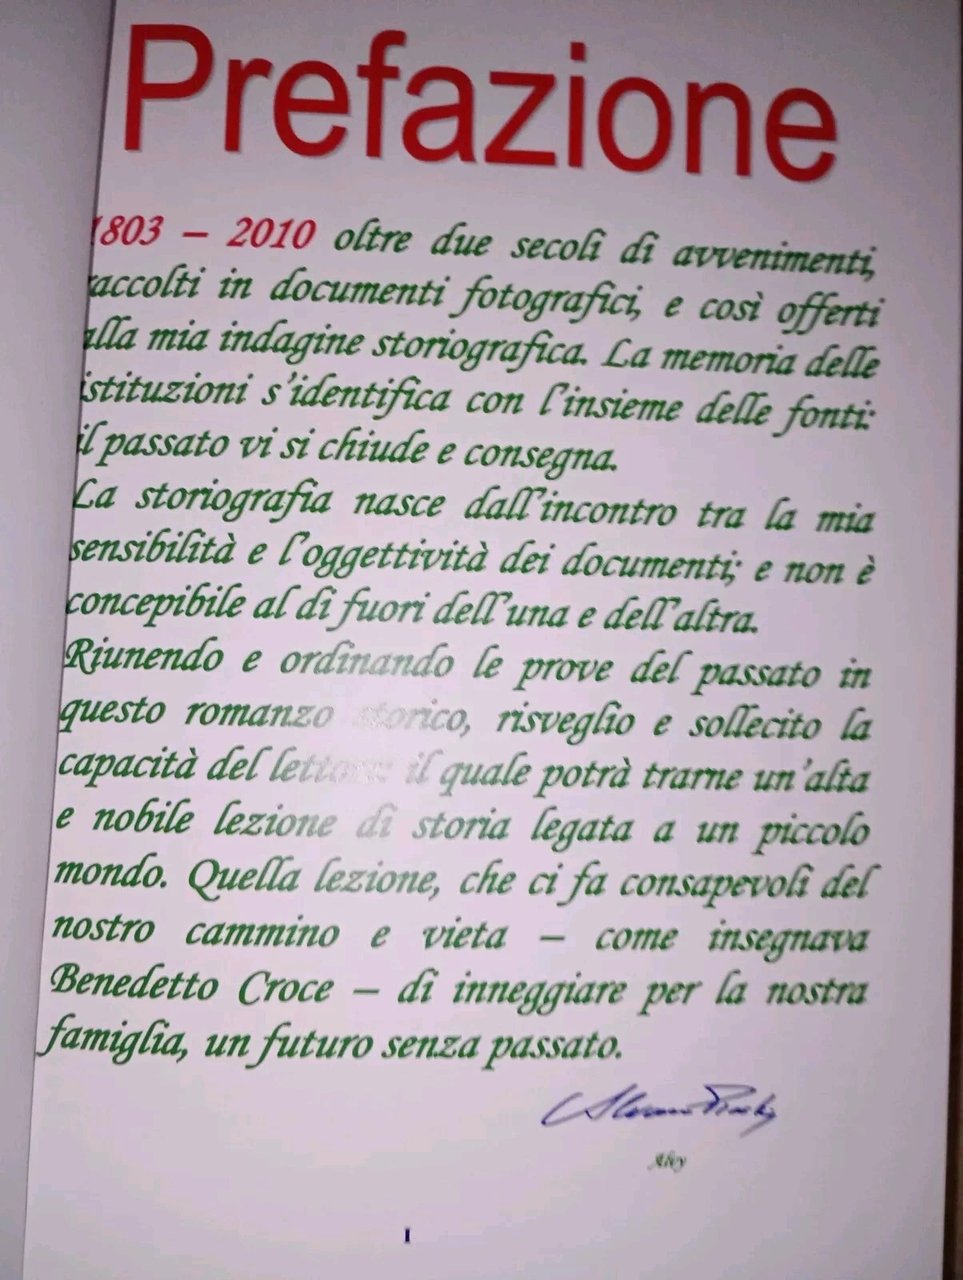 Prefazione
1803 – 2010 oltre due secoli di avvenimenti,
raccolti in documenti fotografici, e così offerti
alla mia indagine storiografica. La memoria delle
istituzioni s'identifica con l'insieme delle fonti:
il passato vi si chiude e consegna.
La storiografia nasce dall'incontro tra la mia
sensibilità e l'oggettività dei documenti; e non è
concepibile al di fuori dell'una e dell'altra.
Riunendo e ordinando le prove del passato in
questo romanzo storico, risveglio e sollecito la
capacità del lettore: il quale potrà trarne un'alta
e nobile lezione di storia legata a un piccolo
mondo. Quella lezione, che ci fa consapevoli del
nostro cammino e vieta – come insegnava
Benedetto Croce – di inneggiare per la nostra
famiglia, un futuro senza passato.
I